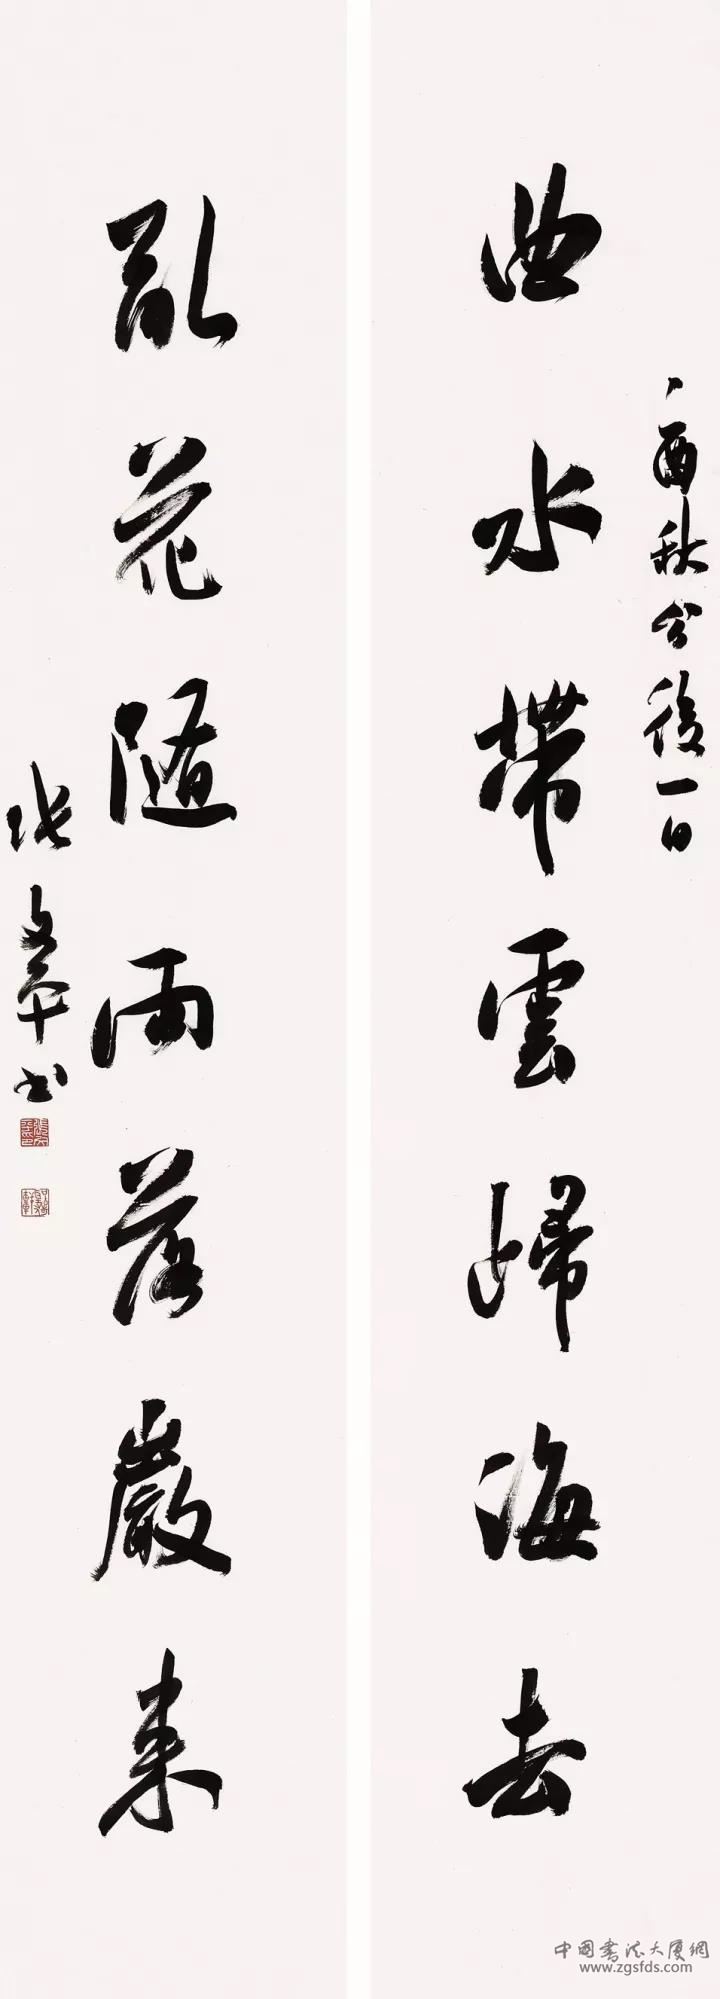 丁酉秋分後一日
曲水帶雲歸海去
亂花隨雨落巖來
張文平書
中国書法大厦網
www.zgsfds.com